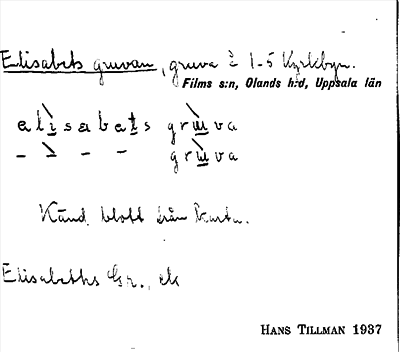 Elisabets gruvan, gruva å 1-5 Kyrkbyn.
Films s:n, Olands h:d, Uppsala län
elisabets gruva
– – – – gruva
Känd blott från karta.
Elisabeths Gr., ek
HANS TILLMAN 1937